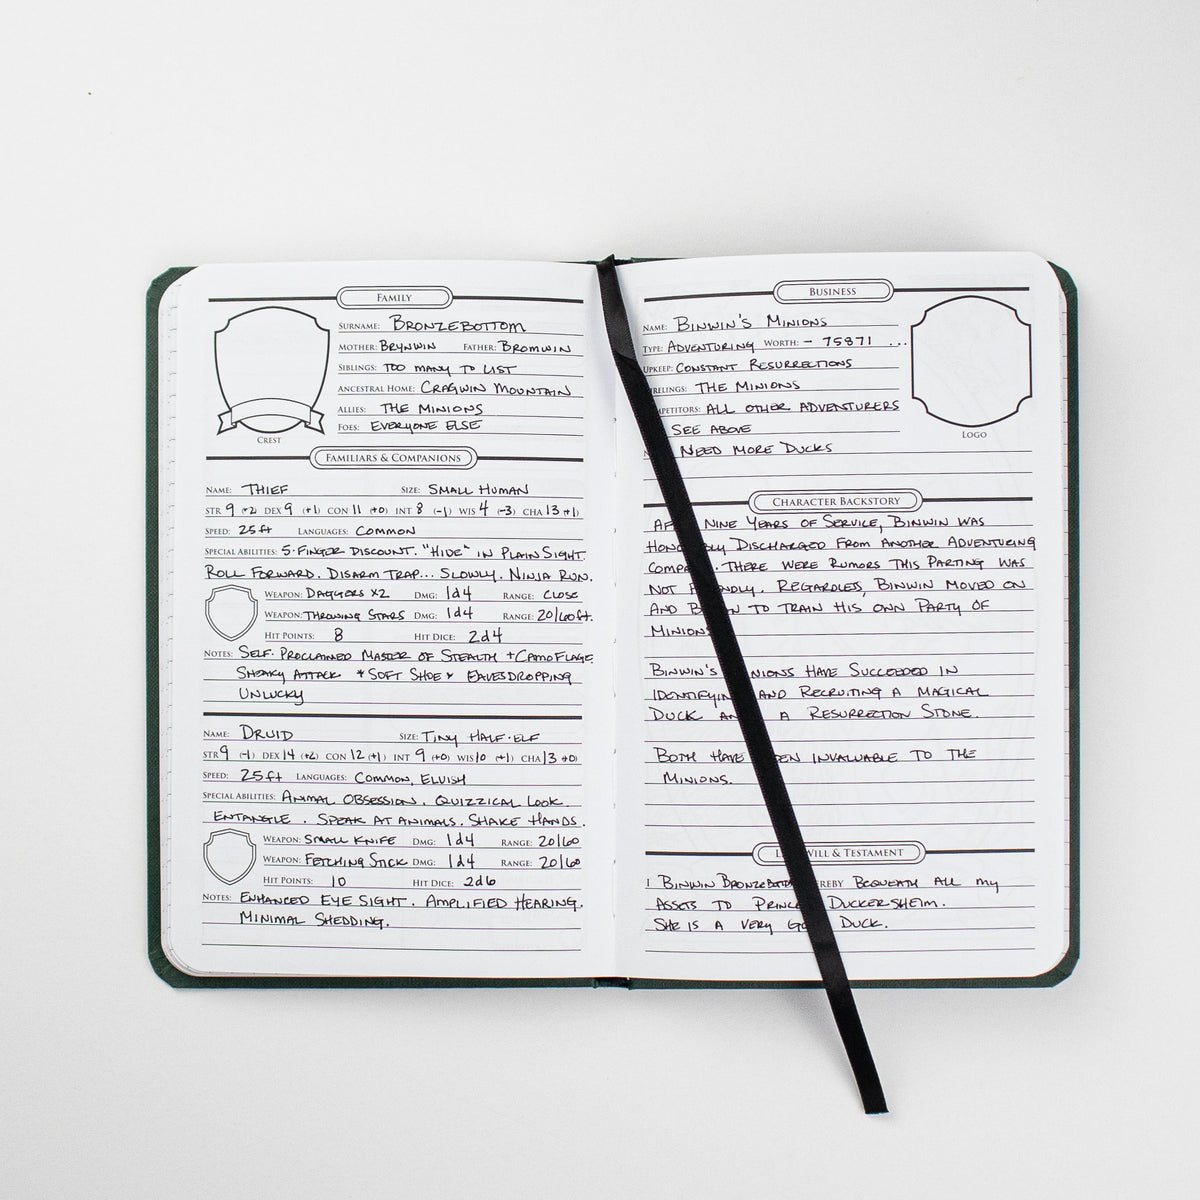 FAMILY
SURNAME: BRONZEBOTTOM
MOTHER: BRYNWIN FATHER: BROMWIN
SIBLINGS: TOO MANY TO LIST
ANCESTRAL HOME: CRAGWIN MOUNTAIN
ALLIES: THE MINIONS
FOES: EVERYONE ELSE
CREST
FAMILIARS & COMPANIONS
NAME: THIEF SIZE: SMALL HUMAN
STR 9 (+2) DEX 9 (+1) CON 11 (+0) INT 8 (-1) WIS 4 (-3) CHA 13 (+1)
SPEED: 25ft LANGUAGES: COMMON
SPECIAL ABILITIES: 5-FINGER DISCOUNT. "HIDE" IN PLAIN SIGHT.
ROLL FORWARD. DISARM TRAP... SLOWLY. NINJA RUN.
WEAPON: DAGGERS X2 DMG: 1d4 RANGE: CLOSE
WEAPON: THROWING STARS DMG: 1d4 RANGE: 20/60ft.
HIT POINTS: 8 HIT DICE: 2d4
NOTES: SELF-PROCLAIMED MASTER OF STEALTH + CAMOFLAGE.
SNEAKY ATTACK * SOFT SHOE * EAVESDROPPING
UNLUCKY
NAME: DRUID SIZE: TINY HALF-ELF
STR 9 (-1) DEX 14 (+2) CON 12 (+1) INT 9 (+0) WIS 10 (+1) CHA 13 (+0)
SPEED: 25ft LANGUAGES: COMMON, ELVISH
SPECIAL ABILITIES: ANIMAL OBSESSION. QUIZZICAL LOOK.
ENTANGLE. SPEAK AT ANIMALS. SHAKE HANDS.
WEAPON: SMALL KNIFE DMG: 1d4 RANGE: 20/60
WEAPON: FETCHING STICK DMG: 1d4 RANGE: 20/60
HIT POINTS: 10 HIT DICE: 2d6
NOTES: ENHANCED EYE SIGHT. AMPLIFIED HEARING.
MINIMAL SHEDDING.
BUSINESS
NAME: BINWIN'S MINIONS
TYPE: ADVENTURING WORTH: - 75871 ...
UPKEEP: CONSTANT RESURRECTIONS
IRELINGS: THE MINIONS
MPETITORS: ALL OTHER ADVENTURERS
SEE ABOVE
NEED MORE DUCKS
LOGO
CHARACTER BACKSTORY
AF NINE YEARS OF SERVICE, BINWIN WAS
HONO BLY DISCHARGED FROM ANOTHER ADVENTURING
COMPA . THERE WERE RUMORS THIS PARTING WAS
NOT F NDLY. REGARDLES, BINWIN MOVED ON
AND B N TO TRAIN HIS OWN PARTY OF
MINIONS
BINWIN'S NIONS HAVE SUCCEEDED IN
IDENTIFYIN AND RECRUITING A MAGICAL
DUCK AN A RESURRECTION STONE.
BOTH HAVE EEN INVALUABLE TO THE
MINIONS.
L WILL & TESTAMENT
I BINWIN BRONZEBOTTO EREBY BEQUEATH ALL MY
ASSETS TO PRINCE DUCKERSHEIM.
SHE IS A VERY GO DUCK.